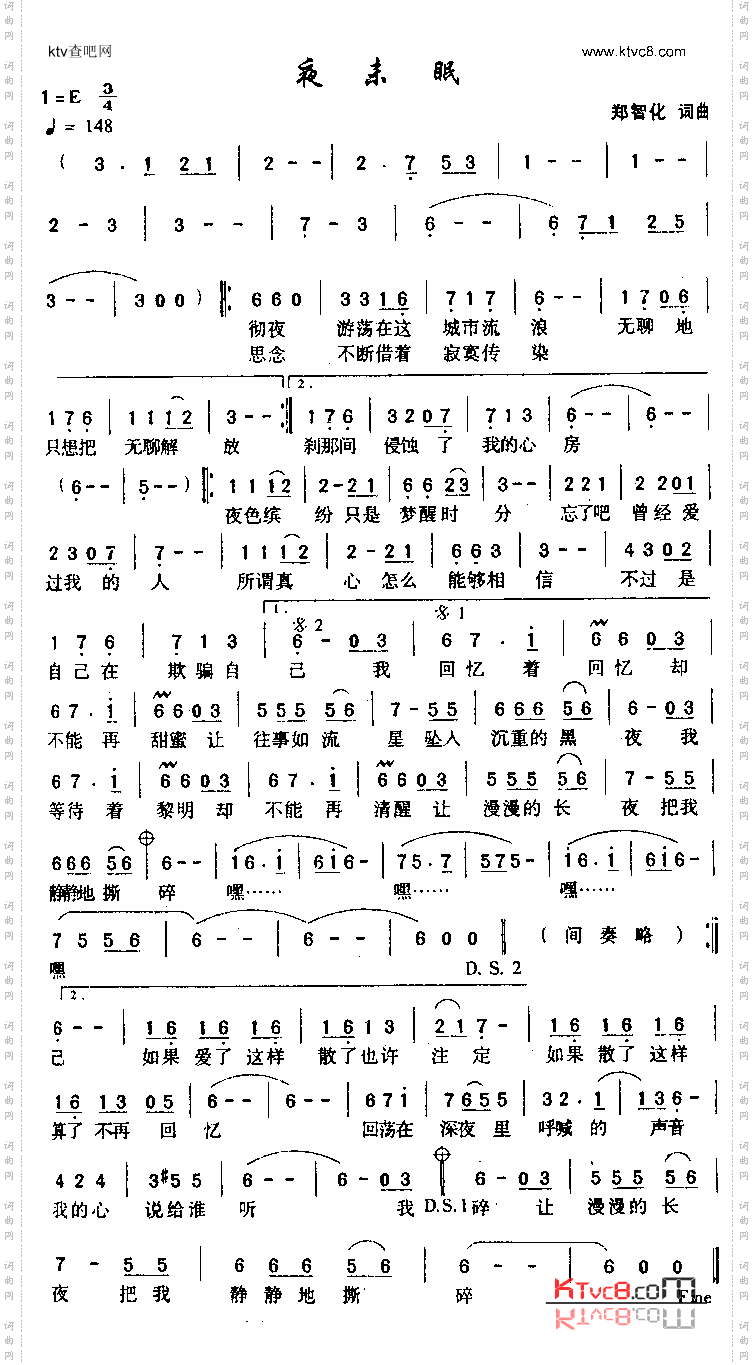 ktv查吧网
www.ktvc8.com
夜未眠
1=E 3/4
♩= 148
郑智化 词曲
( 3 · 1 2 1 | 2 - - | 2 · 7 5 3 | 1 - - | 1 - - |
2 - 3 | 3 - - | 7 - 3 | 6 - - | 6 7 1 2 5 |
3 - - | 3 0 0 ) |: 6 6 0 | 3 3 1 6 | 7 1 7 | 6 - - | 1 7 0 6 |
彻夜 游荡在这 城市流 浪 无聊地
思念 不断借着 寂寞传 染
2.
1 7 6 | 1 1 1 2 | 3 - - :| 1 7 6 | 3 2 0 7 | 7 1 3 | 6 - - | 6 - - |
只想把 无聊解 放 刹那间 侵蚀 了 我的心 房
( 6 - - | 5 - - ) |: 1 1 1 2 | 2 - 2 1 | 6 6 2 3 | 3 - - | 2 2 1 | 2 2 0 1 |
夜色缤 纷 只是 梦醒时 分 忘了吧 曾经爱
2 3 0 7 | 7 - - | 1 1 1 2 | 2 - 2 1 | 6 6 3 | 3 - - | 4 3 0 2 |
过我 的 人 所谓真 心 怎么 能够相 信 不过是
1. 𝄋 2 𝄋 1
1 7 6 | 7 1 3 | 6 - 0 3 | 6 7 · i | 6 6 0 3 |
自己在 欺骗自 己 我 回忆 着 回忆 却
6 7 · i | 6 6 0 3 | 5 5 5 5 6 | 7 - 5 5 | 6 6 6 5 6 | 6 - 0 3 |
不能 再 甜蜜 让 往事如 流 星 坠入 沉重的 黑 夜 我
6 7 · i | 6 6 0 3 | 6 7 · i | 6 6 0 3 | 5 5 5 5 6 | 7 - 5 5 |
等待 着 黎明 却 不能 再 清醒 让 漫漫的 长 夜 把我
6 6 6 5 6 | 6 - - | 1 6 · i | 6 i 6 - | 7 5 · 7 | 5 7 5 - | 1 6 · i | 6 i 6 - |
静静地 撕 碎 嘿…… 嘿…… 嘿……
7 5 5 6 | 6 - - | 6 - - | 6 0 0 || ( 间 奏 略 ) :|
嘿 D. S. 2
2.
6 - - | 1 6 1 6 1 6 | 1 6 1 3 | 2 1 7 - | 1 6 1 6 1 6 |
己 如果 爱了 这样 散了也许 注 定 如果 散了 这样
1 6 1 3 0 5 | 6 - - | 6 - - | 6 7 1 | 7 6 5 5 | 3 2 · 1 | 1 3 6 - |
算了 不再 回 忆 回荡在 深夜 里 呼喊 的 声音
4 2 4 | 3 #5 5 | 6 - - | 6 - 0 3 || 6 - 0 3 | 5 5 5 5 6 |
我的心 说给谁 听 我 D.S.1 碎 让 漫漫的 长
7 - 5 5 | 6 6 6 5 6 | 6 - - | 6 - - | 6 0 0 ||
夜 把 我 静 静 地 撕 碎 Fine
KTvc8.com
词曲网